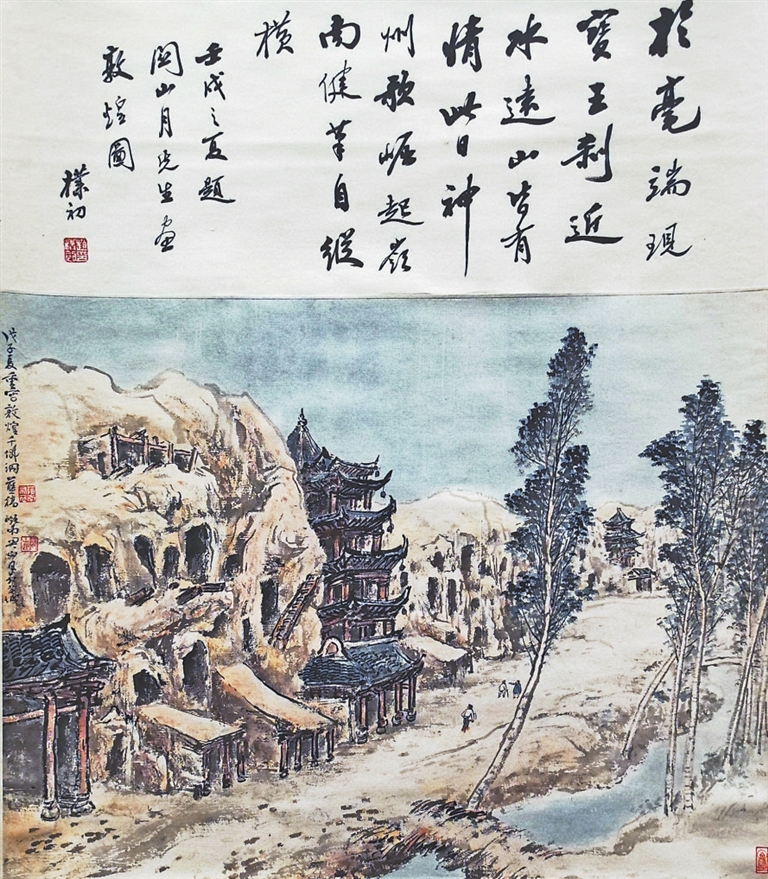 於毫端現
寶王刹近
水遠山皆有
情此日神
州欣崛起嶺
南健筆自縱
橫
壬戌之夏題
関山月先生畫
敦煌圖
樸初
戊子夏重寫敦煌千佛洞舊稿